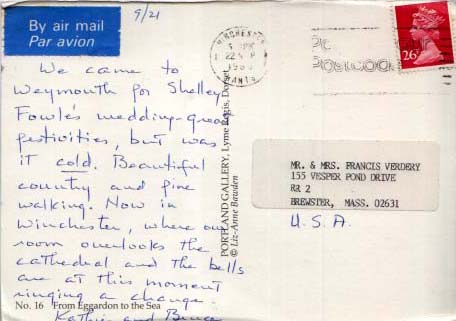 By air mail
Par avion
9/21
We came to
Weymouth for Shelley
Fowle's wedding-great
festivities, but was
it cold. Beautiful
country and fine
walking. Now in
Winchester, where our
room overlooks the
cathedral and the bells
are at this moment
ringing a change.
Kathie and Bruce
No. 16 From Eggardon to the Sea
PORTLAND GALLERY, Lyme Regis, Dorset
© Liz-Anne Bawden
WINCHESTER
HANTS
26
MR. & MRS. FRANCIS VERDERY
155 VESPER POND DRIVE
RR 2
BREWSTER, MASS. 02631
U.S.A.